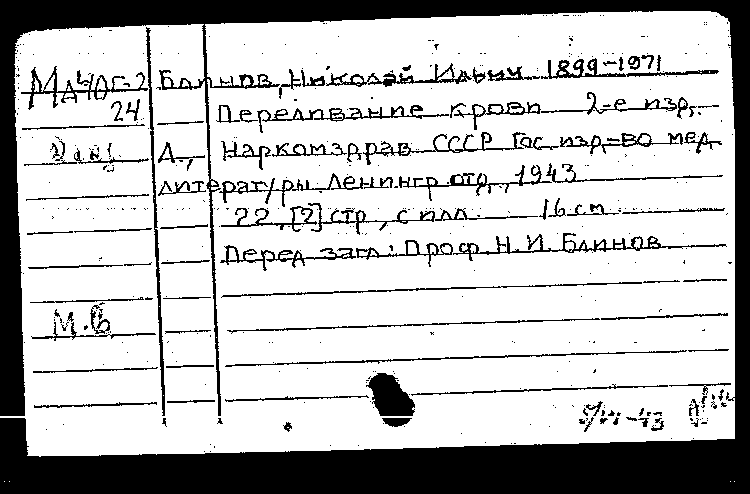 Блинов, Николай Ильич 1899-1971
24 Переливание крови 2-е изд.
Л., Наркомздрав СССР Гос. изд-во мед.
литературы Ленингр отд, 1943
22, [2] стр, с илл. 16 см
Перед загл: Проф. Н. И. Блинов
М.В.